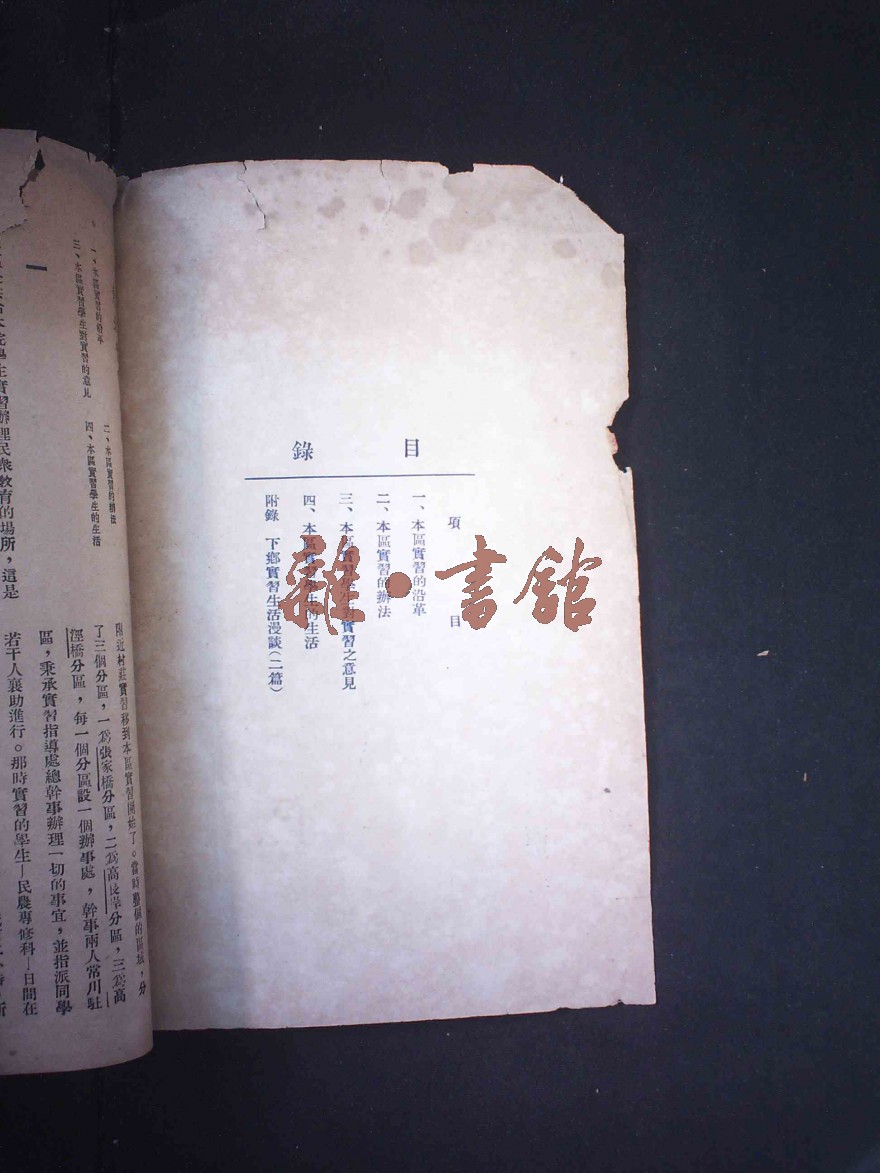 目錄
項目
一、本區實習的沿革
二、本區實習的辦法
三、本區實習學生對實習之意見
四、本區實習學生的生活
附錄 下鄉實習生活漫談（二篇）
雜·書館
一、本區實習的沿革
二、本區實習的辦法
三、本區實習學生對實習的意見
四、本區實習學生的生活
一
本院學生實習辦理民衆教育的場所，這是
附近村莊實習移到本區實習開始了。當時整個的區域，分
了三個分區，一爲張家橋分區，二爲高長岸分區，三爲高
涇橋分區，每一個分區設一個辦事處，幹事兩人常川駐
區，秉承實習指導處總幹事辦理一切的事宜，並指派同學
若干人襄助進行。那時實習的學生—民農專修科—日間在